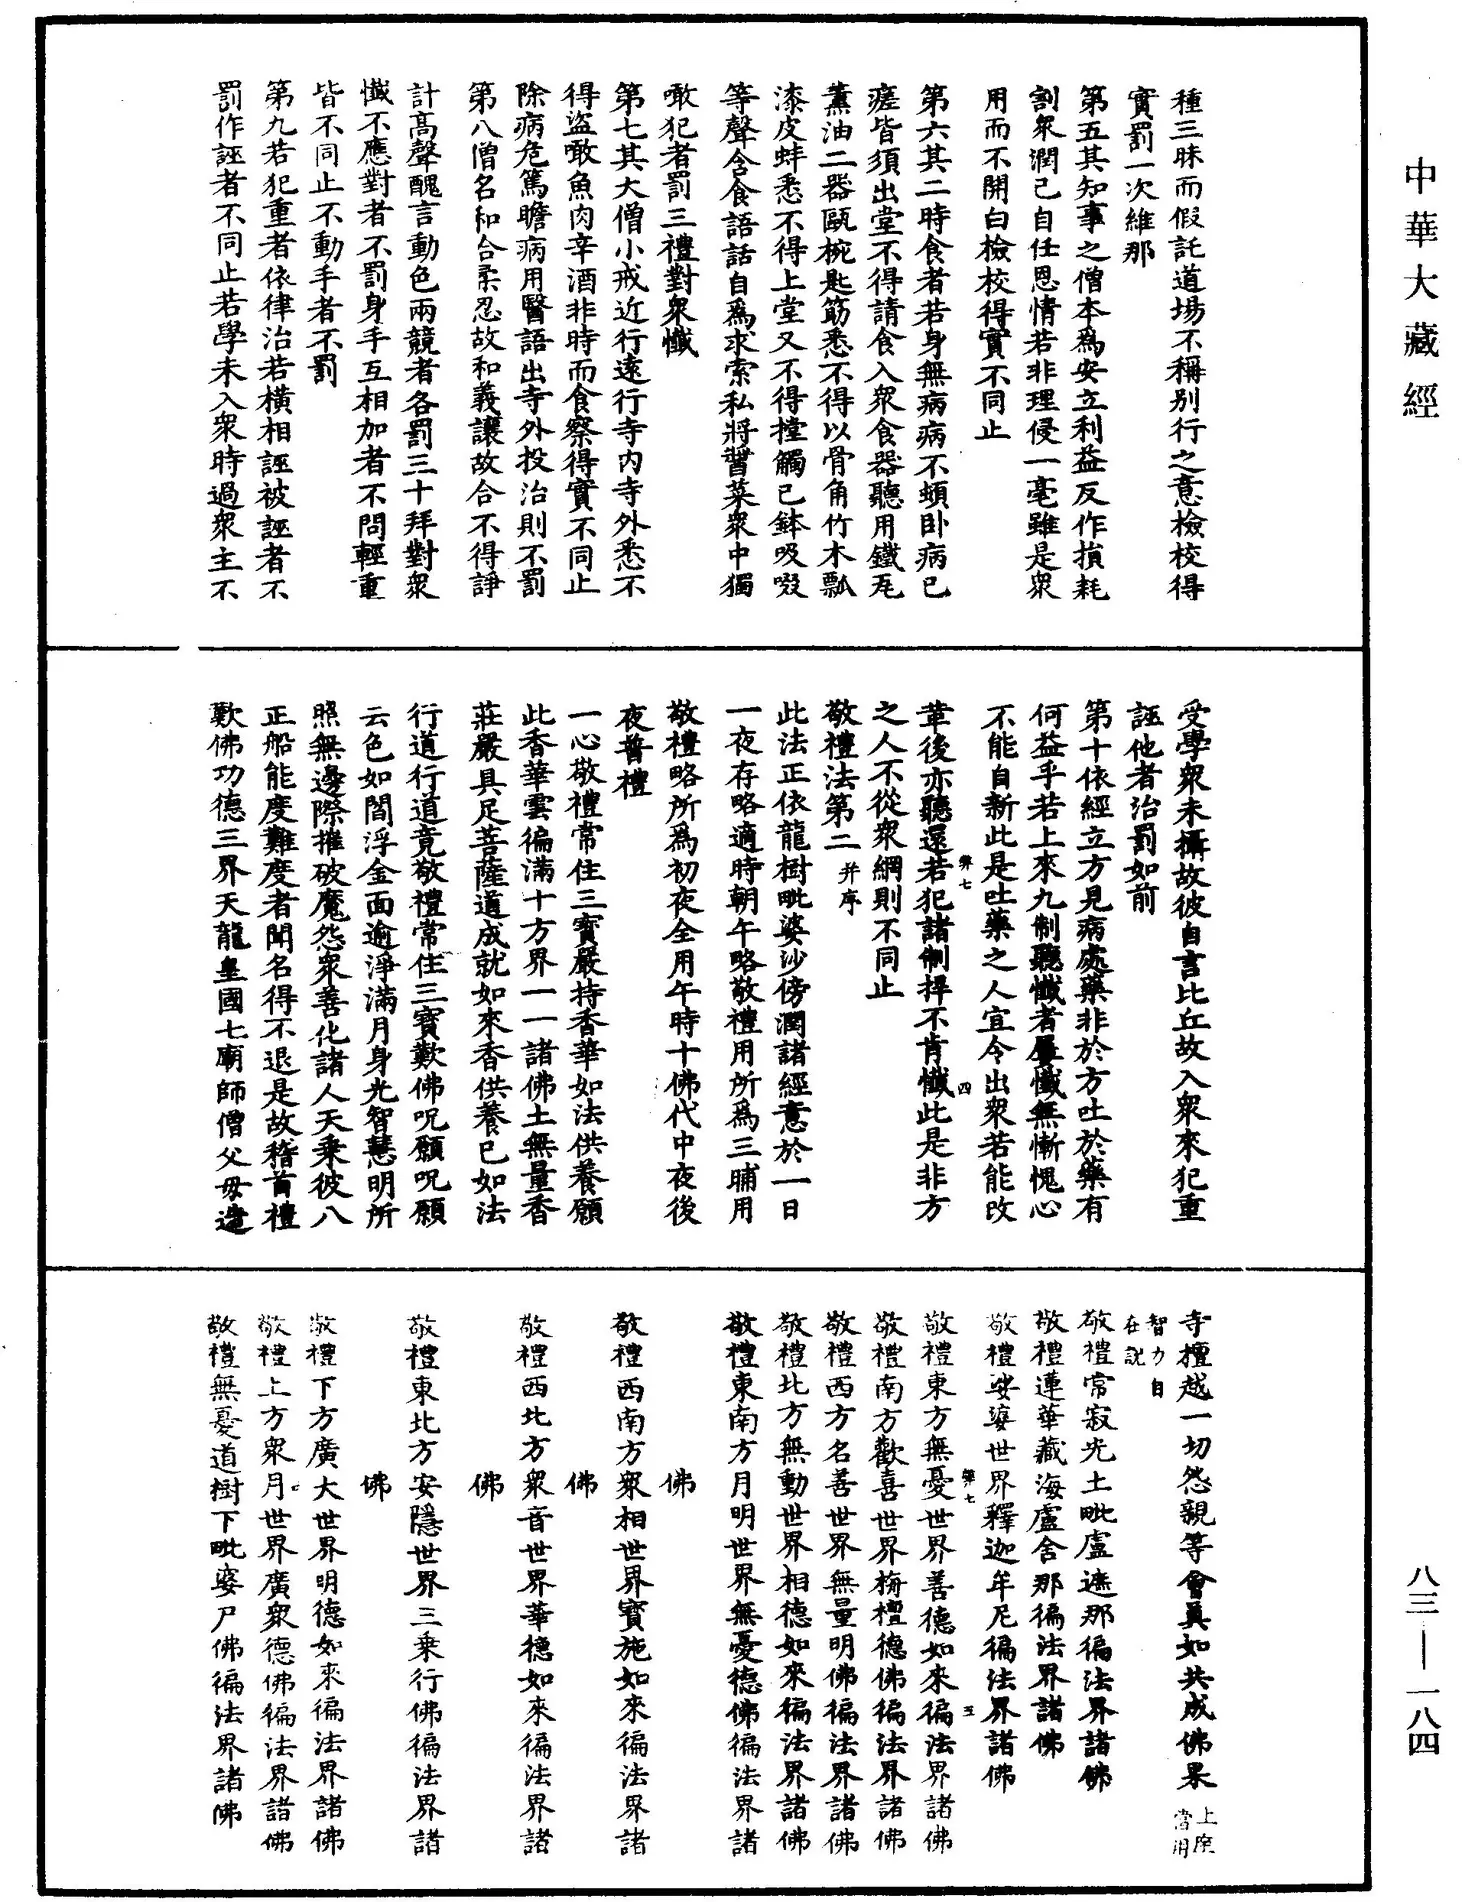 中華大藏經
種三昧而假託道場不稱別行之意檢校得
實罰一次維那
第五其知事之僧本為安立利益反作損耗
割衆潤己自任恩情若非理侵一毫雖是衆
用而不開白檢校得實不同止
第六其二時食者若身無病病不頓卧病已
瘥皆須出堂不得請食入衆食器聽用鐵瓦
薰油二器甌椀匙筯悉不得以骨角竹木瓢
漆皮蚌悉不得上堂又不得摚觸已鉢吸啜
等聲含食語話自為求索私將醬菜衆中獨
噉犯者罰三禮對衆懺
第七其大僧小戒近行遠行寺內寺外悉不
得盜噉魚肉辛酒非時而食察得實不同止
除病危篤瞻病用醫語出寺外投治則不罰
第八僧名和合柔忍故和義讓故合不得諍
計高聲醜言動色兩競者各罰三十拜對衆
懺不應對者不罰身手互相加者不問輕重
皆不同止不動手者不罰
第九若犯重者依律治若橫相誣被誣者不
罰作誣者不同止若學未入衆時過衆主不
受學衆未攝故彼自言比丘故入衆來犯重
誣他者治罰如前
第十依經立方見病處藥非於方吐於藥有
何益乎若上來九制聽懺者屢懺無慚愧心
不能自新此是吐藥之人宜令出衆若能改
革後亦聽還若犯諸制捍不肯懺此是非方
弊七 四
之人不從衆網則不同止
敬禮法第二 并序
此法正依龍樹毗婆沙傍潤諸經意於一日
一夜存略適時朝午略敬禮用所為三晡用
敬禮略所為初夜全用午時十佛代中夜後
夜普禮
一心敬禮常住三寶嚴持香華如法供養願
此香華雲徧滿十方界一一諸佛土無量香
莊嚴具足菩薩道成就如來香供養已如法
行道行道竟敬禮常住三寶歎佛呪願呪願
云色如閻浮金面逾淨滿月身光智慧明所
照無邊際摧破魔怨衆善化諸人天乘彼八
正船能度難度者聞名得不退是故稽首禮
歎佛功德三界天龍皇國七廟師僧父母造
寺檀越一切怨親等會真如共成佛果 上座當用
智力自
在說
敬禮常寂光土毗盧遮那徧法界諸佛
敬禮蓮華藏海盧舍那徧法界諸佛
敬禮娑婆世界釋迦牟尼徧法界諸佛
弊七 五
敬禮東方無憂世界善德如來徧法界諸佛
敬禮南方歡喜世界栴檀德佛徧法界諸佛
敬禮西方名善世界無量明佛徧法界諸佛
敬禮北方無動世界相德如來徧法界諸佛
敬禮東南方月明世界無憂德佛徧法界諸
佛
敬禮西南方衆相世界寶施如來徧法界諸
佛
敬禮西北方衆音世界華德如來徧法界諸
佛
敬禮東北方安隱世界三乘行佛徧法界諸
佛
敬禮下方廣大世界明德如來徧法界諸佛
敬禮上方衆月世界廣衆德佛徧法界諸佛
敬禮無憂道樹下毗婆尸佛徧法界諸佛
八三—一八四